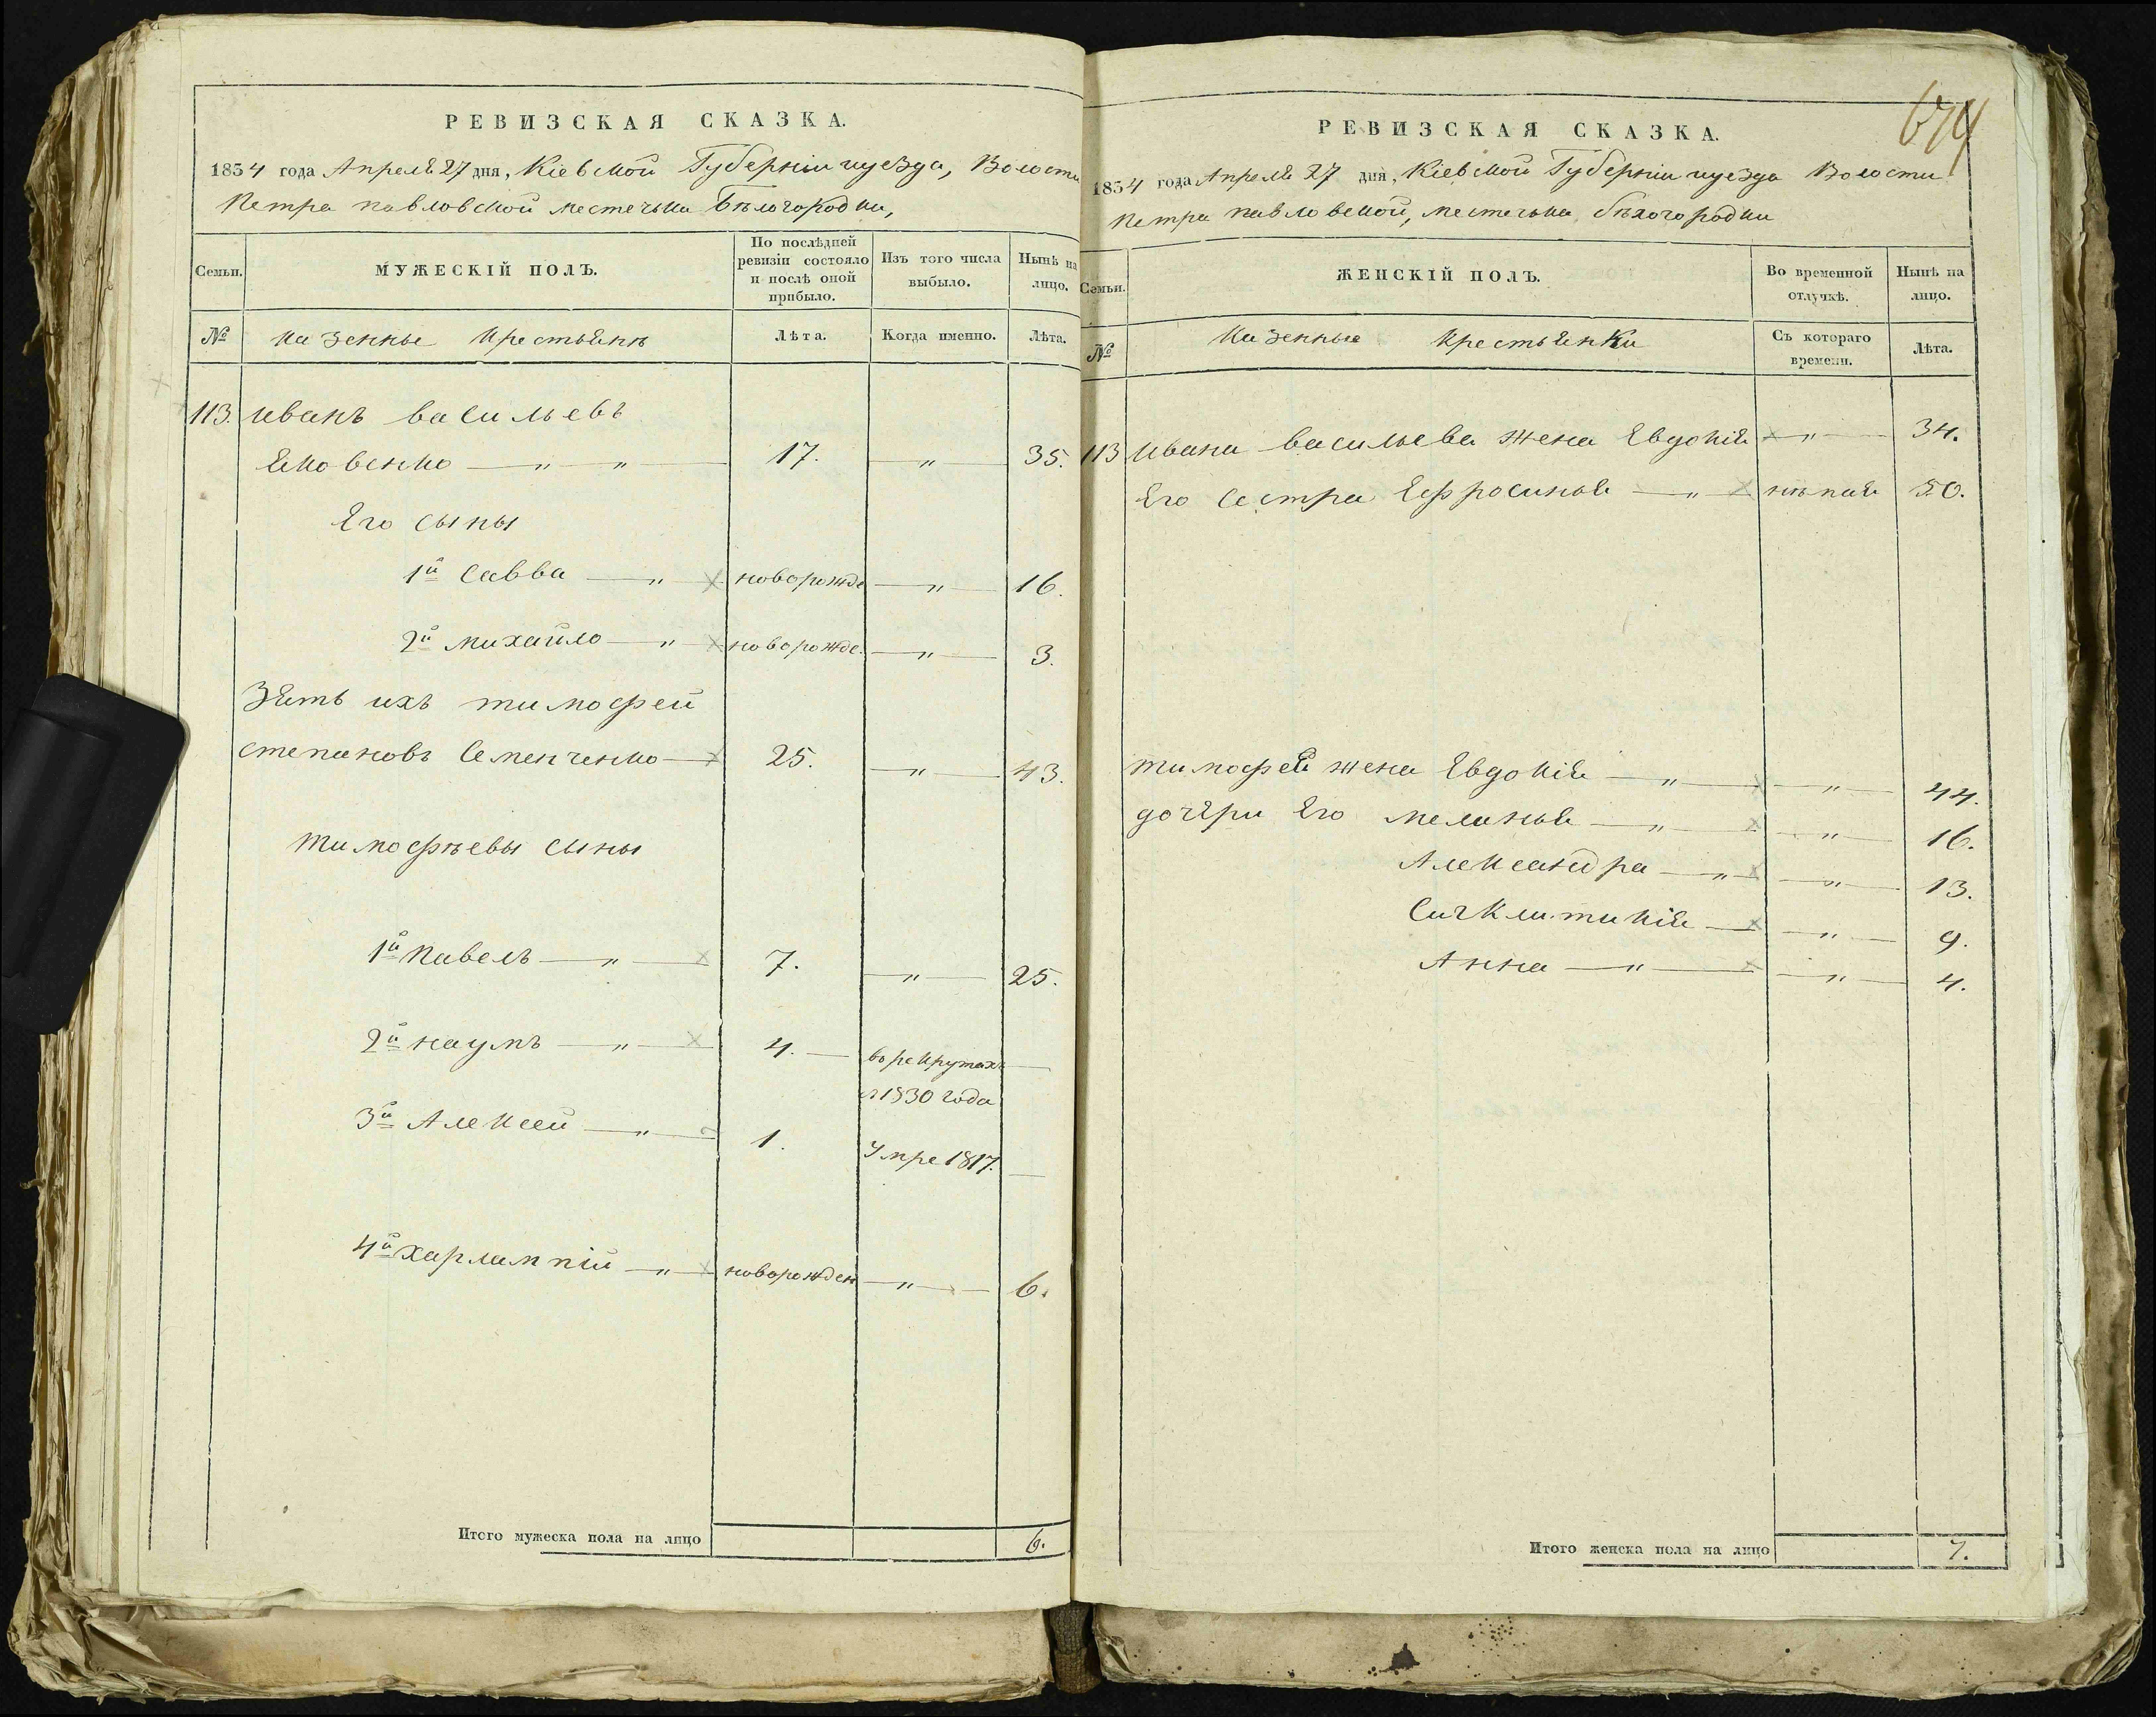 РЕВИЗСКАЯ СКАЗКА.
1834 года Апреля 27 дня, Кіевской Губерніи и уезда, Волости
Петра павловской местечка Бѣлогородки,
Семьи.
МУЖЕСКІЙ ПОЛЪ.
По послѣдней
ревизіи состояло
и послѣ оной
прибыло.
Изъ того числа
выбыло.
Нынѣ на
лицо.
№
Казенные Крестьянѣ
Лѣта.
Когда именно.
Лѣта.
113. иванъ васильевъ
Яковенко — „ — „ — 17. — „ — 35.
Его сыны
1й Савва — „ — новорожде — „ — 16.
2й михайло — „ — новорожде. — „ — 3.
Зять ихъ тимофей
степановъ Семенченко — 25. — „ — 43.
тимофѣевы сыны
1й Павелъ — „ — 7. — „ — 25.
2й наумъ — „ — 4. — въ рекрутахъ —
с 1830 года
3й Алексей — „ — 1. Умре 1817. —
4й харлампій — „ — новорожден — „ — 6.
Итого мужеска пола на лицо 6.
674
РЕВИЗСКАЯ СКАЗКА.
1834 года Апреля 27 дня, Кіевской Губерніи и уезда Волости
Петра павловской, местечка бѣлогородки
Семьи.
ЖЕНСКІЙ ПОЛЪ.
Во временной
отлучкѣ.
Нынѣ на
лицо.
№
Казенные Крестьянки
Съ котораго
времени.
Лѣта.
113 ивана васильева жена Евдокія — „ — 34.
Его Сестра Ефросинья — „ — нѣмая 50.
тимофея жена Евдокія — „ — „ — 44.
дочери Его меланья — „ — „ — 16.
Александра — „ — „ — 13.
Сигклитикія — „ — 9.
Анна — „ — „ — 4.
Итого женска пола на лицо 7.